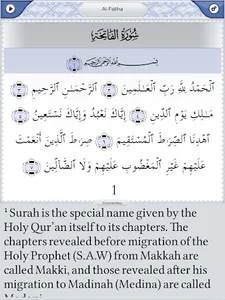 Al-Fatiha
سُورَةُ الفَاتِحَةِ
بِسْمِ اللهِ الرَّحْمٰنِ الرَّحِيمِ
الْحَمْدُ لِلَّهِ رَبِّ الْعَالَمِينَ الرَّحْمَـٰنِ الرَّحِيمِ
مَـٰلِكِ يَوْمِ الدِّينِ إِيَّاكَ نَعْبُدُ وَإِيَّاكَ نَسْتَعِينُ
اهْدِنَا الصِّرَاطَ الْمُسْتَقِيمَ صِرَاطَ الَّذِينَ أَنْعَمْتَ
عَلَيْهِمْ غَيْرِ الْمَغْضُوبِ عَلَيْهِمْ وَلَا الضَّالِّينَ
1
Commentary
¹ Surah is the special name given by the
Holy Qur'an itself to its chapters. The
chapters revealed before migration of the
Holy Prophet (S.A.W) from Makkah are
called Makki, and those revealed after his
migration to Madinah (Medina) are called